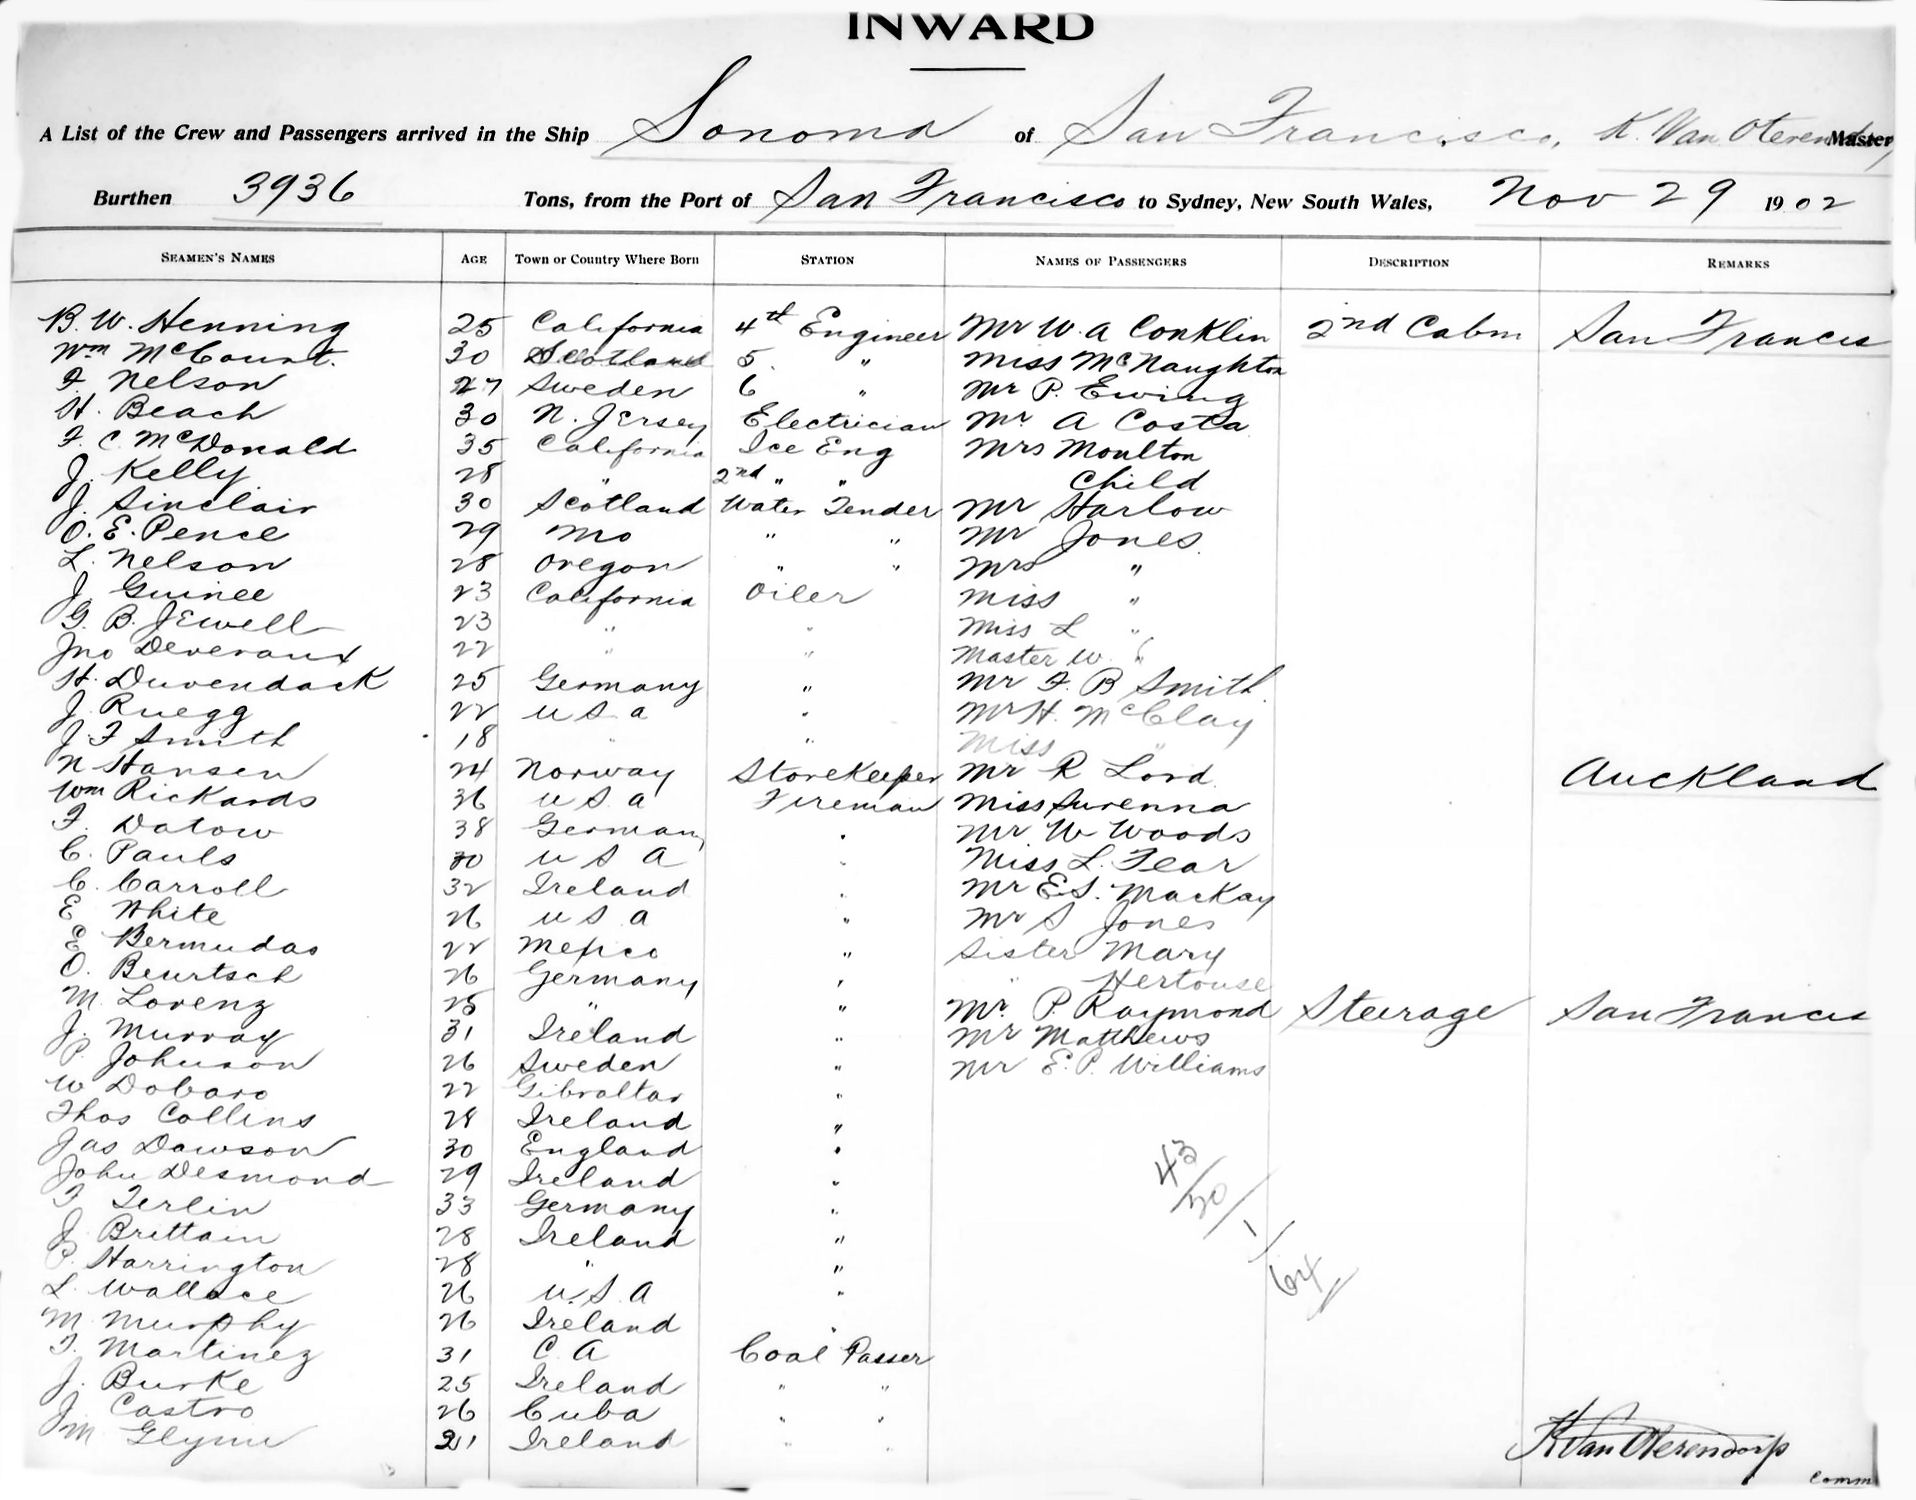 INWARD
A List of the Crew and Passengers arrived in the Ship Sonoma of San Francisco, K. Van Oterendorp, Master
Burthen 3936 Tons, from the Port of San Francisco to Sydney, New South Wales, Nov 29 1902
SEAMEN'S NAMES AGE Town or Country Where Born STATION NAMES OF PASSENGERS DESCRIPTION REMARKS
B. W. Henning 25 California 4th Engineer Mr W. A Conklin 2nd Cabin San Francis
Wm McCourt. 30 Scotland 5. " Miss McNaughton
F. Nelson 27 Sweden 6 " Mr P. Ewing
H. Beach 30 N. Jersey Electrician Mr A Costa
F. C. McDonald 35 California Ice Eng Mrs Moulton
J. Kelly 28 " 2nd " " Child
J. Sinclair 30 Scotland Water Tender Mr Harlow
O. E. Pence 29 Mo " " Mr Jones
L. Nelson 28 Oregon " " Mrs "
J. Guinee 23 California Oiler Miss "
G. B. Jewell 23 " " Miss L "
Jno Deveraux 22 " " Master W. "
H. Duvendack 25 Germany " Mr F. B Smith
J. Ruegg 22 U S A " Mr H. McClay
J. F Smith 18 " " Miss "
N Hansen 24 Norway Storekeeper Mr R Lord Auckland
Wm Rickards 36 U S A Fireman Miss
F. Datow 38 Germany " Mr W Woods
C. Pauls 30 U S A " Miss L. Fear
C. Carroll 32 Ireland " Mr E. S. Mackay
E White 26 U S A " Mr S Jones
E Bermudas 22 Mexico " Sister Mary
O. Beurtsch 26 Germany " " Hertouse
M. Lorenz 25 " " Mr. P. Raymond Steerage San Francis
J. Murray 31 Ireland " Mr Matthews
P. Johnson 26 Sweden " Mr E. P. Williams
W Dobaro 22 Gibraltar "
Thos Collins 28 Ireland "
Jas Dawson 30 England "
John Desmond 29 Ireland "
F Terlin 33 Germany "
J. Brittain 28 Ireland "
P. Harrington 28 " "
L. Wallace 26 U. S. A "
M Murphy 26 Ireland "
F. Martinez 31 C. A Coal Passer
J. Burke 25 Ireland " "
J. Castro 26 Cuba " "
Jm Glynn Ireland " "
43/20/1/64
K Van Oterendorp
Comm